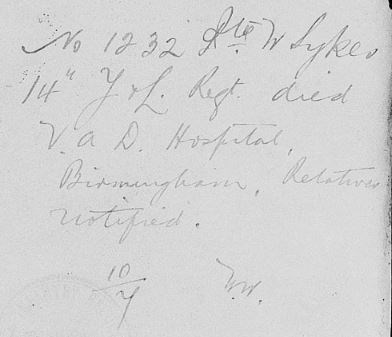 No 1232 Pte W Sykes
14" Y & L. Regt died
V. A D. Hospital,
Birmingham, Relatives
notified.
10/7 W.